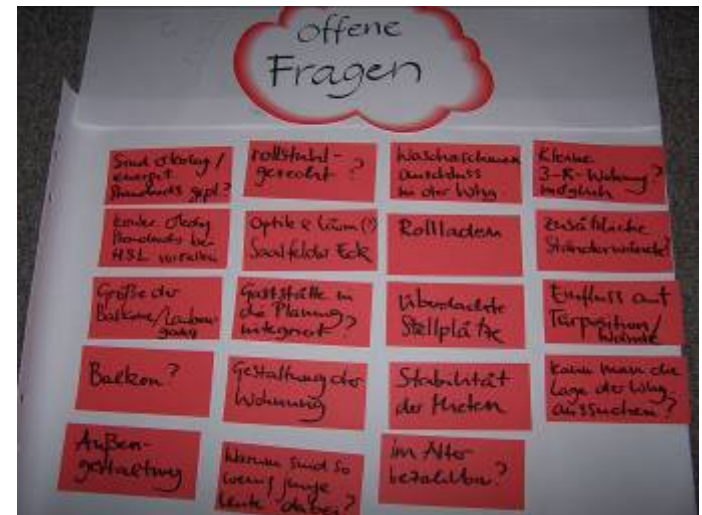 offene
Fragen
Sind ökolog/
energet.
Standards gepl.?
rollstuhl-
gerecht ?
Waschmaschinen
anschluss
in der Whg
Kleine
3-R-Wohnung?
möglich
ökolog
Standards bei
HSL
Optik & Lärm (?)
Saalfelder Eck
Rollladen
zusätzliche
Ständerwände?
Größe der
Balkone/Lauben-
gang
Gaststätte in
die Planung
integriert?
Überdachte
Stellplätze
Einfluss auf
Türposition/
Wände
Balkon?
Gestaltung der
Wohnung
Stabilität
der Mieten
kann man die
Lage der Whg
aussuchen?
Außen-
gestaltung
Warum sind so
wenig junge
Leute dabei?
im Alter
bezahlbar?